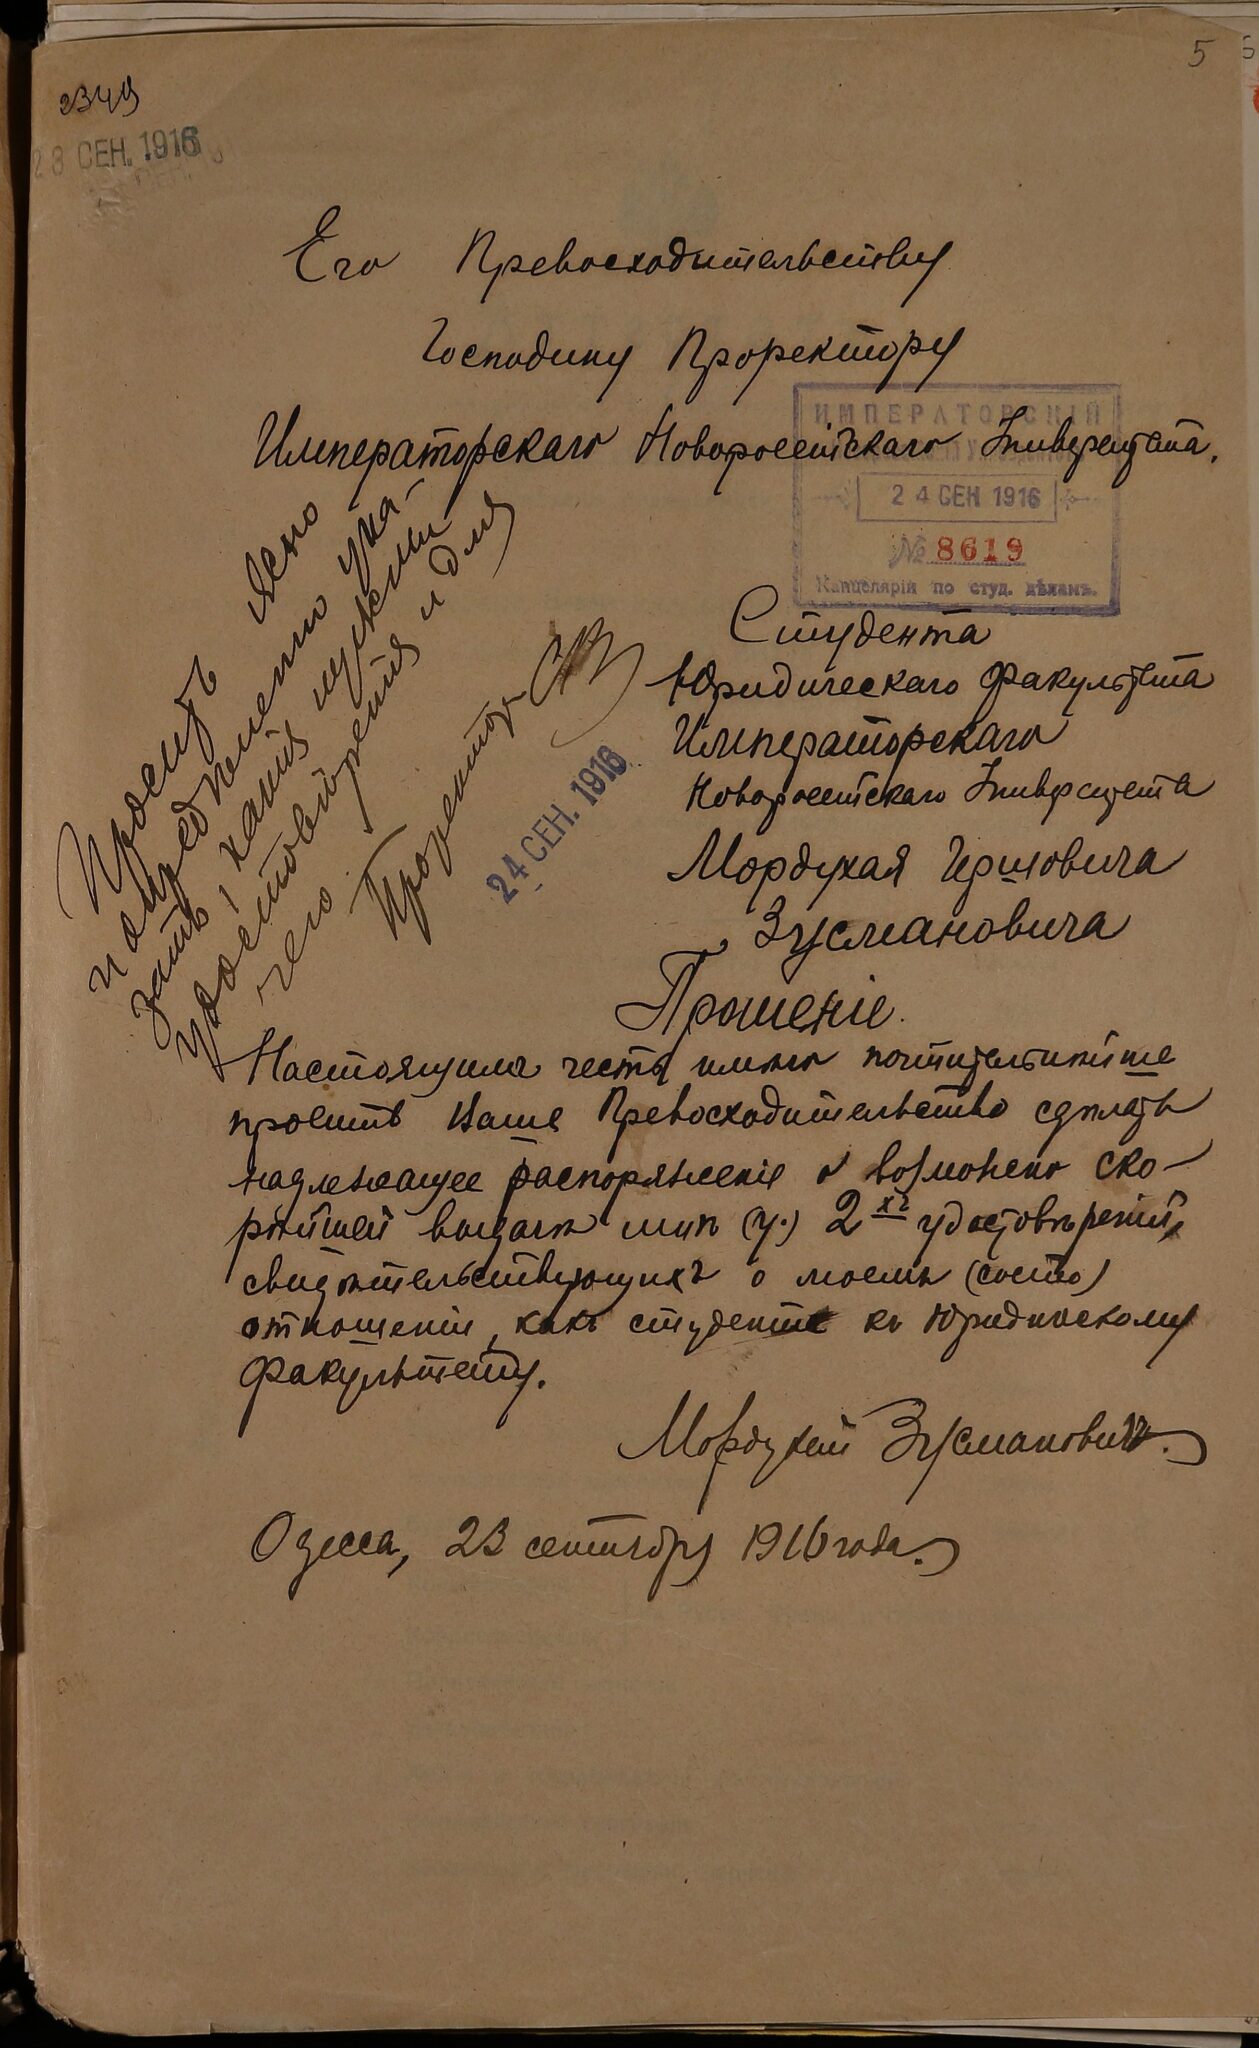 5
2349
28 СЕН. 1916
Его Превосходительству
Господину Проректору
Императорскаго Новороссійскаго Университета.
ИМПЕРАТОРСКІЙ
24 СЕН 1916
№ 8619
Канцелярія по студ. дѣламъ.
Студента
Юридическаго Факультета
Императорскаго
Новороссійскаго Университета
Мордухая Гершовича
Зусмановича
Просить ясно
и опредѣленно ука-
зать, какія нужны
удостовѣренія и для
чего
Проректор
24 СЕН. 1916
Прошеніе.
Настоящимъ честь имѣю почтительнѣйше
просить Ваше Превосходительство сдѣлать
надлежащее распоряженіе о возможно ско-
рѣйшей выдачѣ мнѣ (у.) 2хъ удостовѣреній,
свидѣтельствующихъ о моемъ (состо)
отношеніи, какъ студента къ Юридическому
Факультету.
Мордухай Зусмановичъ.
Одесса, 23 сентября 1916 года.